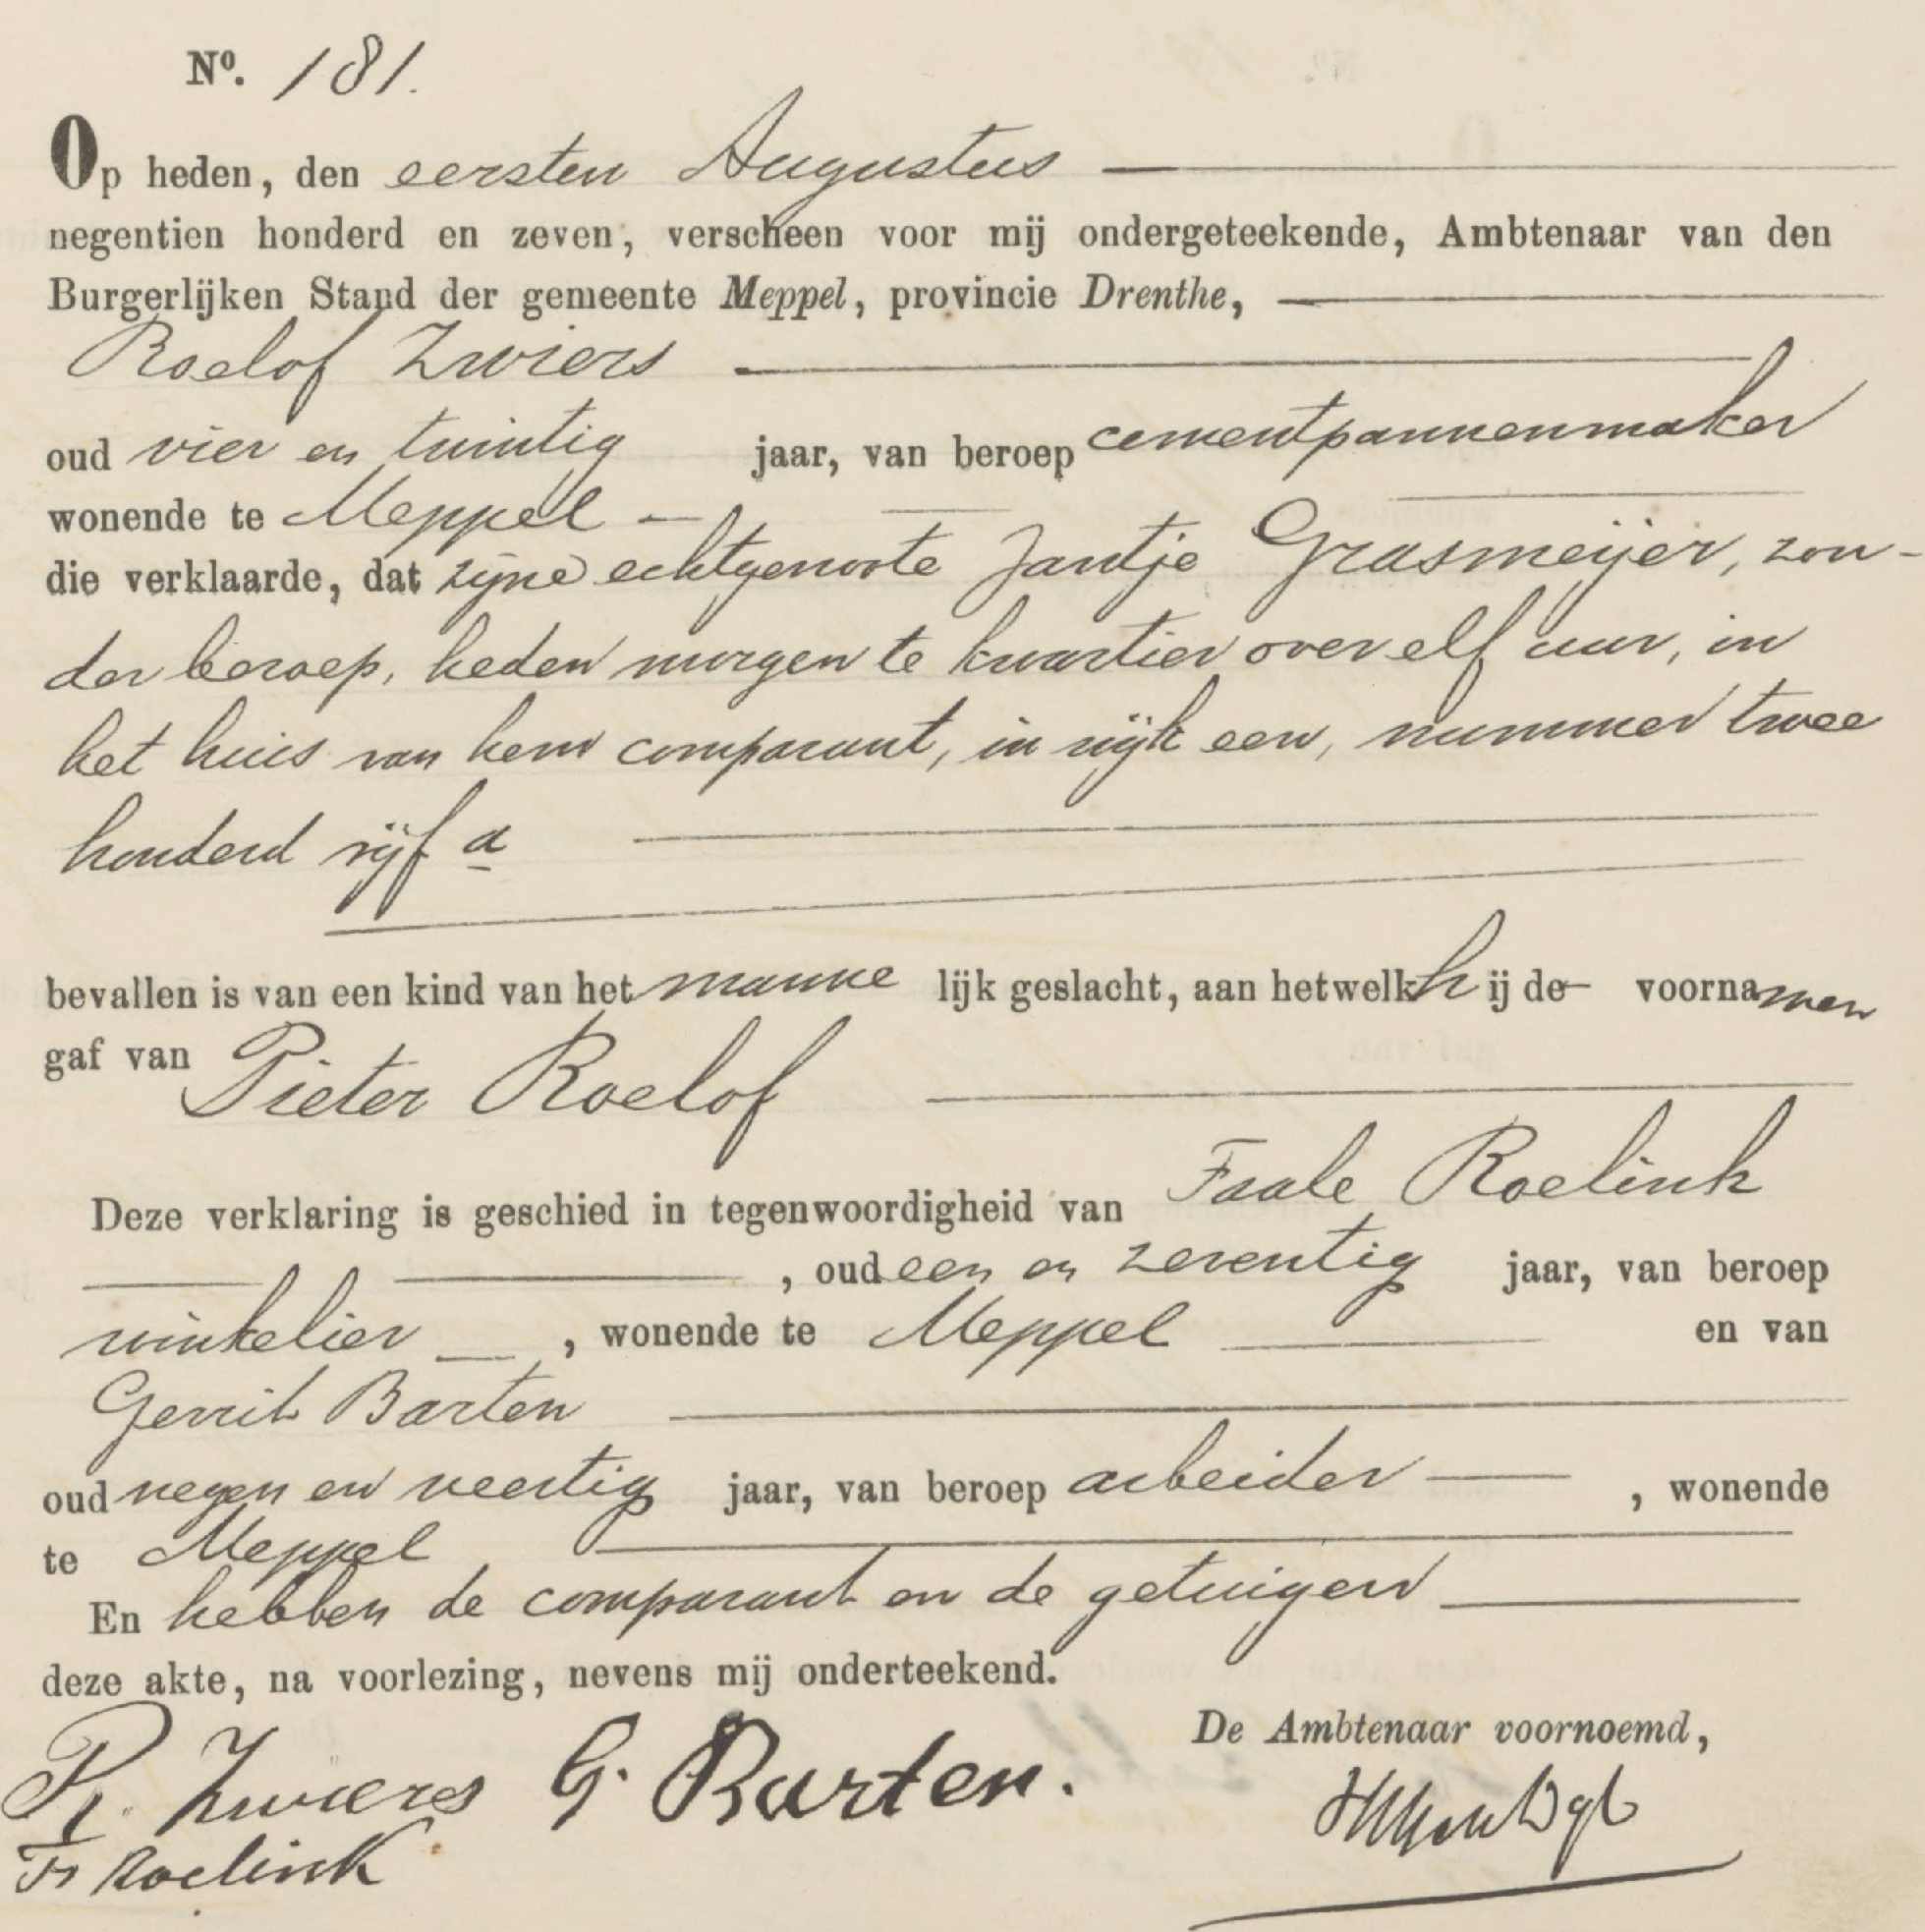 Nº. 181.
Op heden, den eersten Augustus
negentien honderd en zeven, verscheen voor mij ondergeteekende, Ambtenaar van den
Burgerlijken Stand der gemeente Meppel, provincie Drenthe,
Roelof Zwiers
oud vier en twintig jaar, van beroep cementpannenmaker
wonende te Meppel
die verklaarde, dat zijne echtgenoote Jantje Grasmeijer, zon-
der beroep, heden morgen te kwartier over elf uur, in
het huis van hem comparant, in wijk een, nummer twee
honderd vijf a
bevallen is van een kind van het manne lijk geslacht, aan hetwelk hij de voornamen
gaf van Pieter Roelof
Deze verklaring is geschied in tegenwoordigheid van Faale Roelink
, oud een en zeventig jaar, van beroep
winkelier , wonende te Meppel en van
Gerrit Barten
oud negen en veertig jaar, van beroep arbeider , wonende
te Meppel
En hebben de comparant en de getuigen
deze akte, na voorlezing, nevens mij onderteekend.
De Ambtenaar voornoemd,
R. Zwiers G. Barten.
Fs Roelink